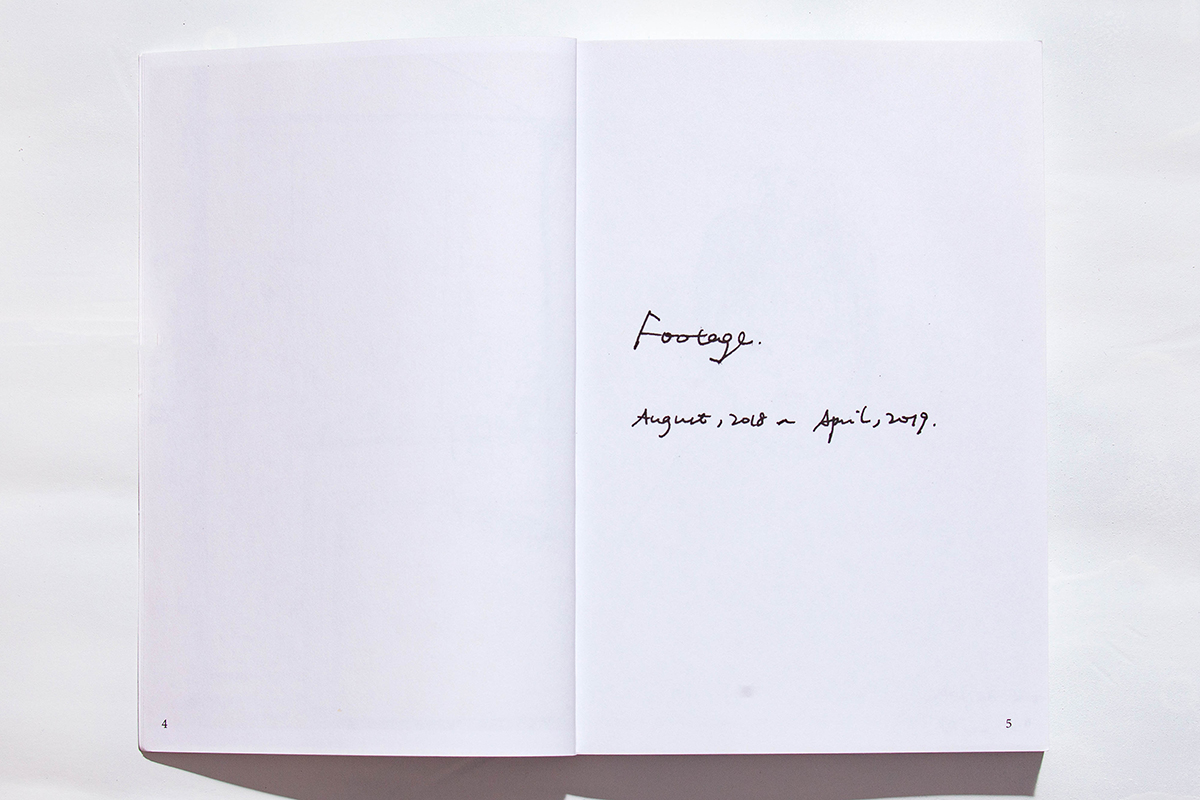 Footage.
August, 2018 ~ April, 2019.
4
5